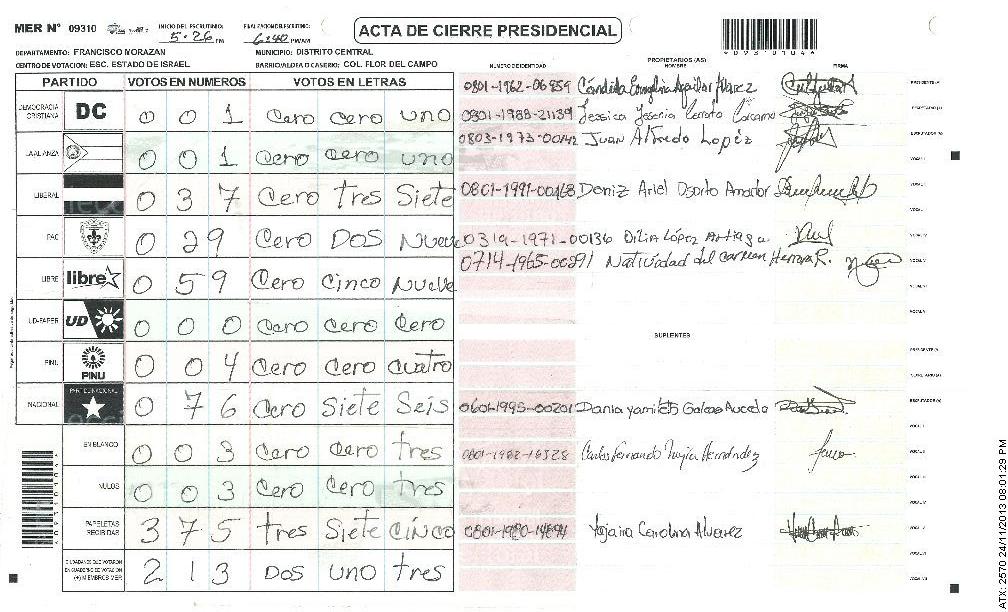 MER Nº 09310 INICIO DEL ESCRUTINIO: 5:26 PM FINALIZACION DEL ESCRUTINIO: 6:40 PM/AM
ACTA DE CIERRE PRESIDENCIAL
DEPARTAMENTO: FRANCISCO MORAZAN MUNICIPIO: DISTRITO CENTRAL
CENTRO DE VOTACION: ESC. ESTADO DE ISRAEL BARRIO/ALDEA O CASERIO: COL. FLOR DEL CAMPO
NUMERO DE IDENTIDAD PROPIETARIOS (AS) NOMBRE FIRMA
PARTIDO VOTOS EN NUMEROS VOTOS EN LETRAS
DEMOCRACIA CRISTIANA DC 0 0 1 Cero Cero uno
LA ALIANZA 0 0 1 Cero Cero uno
LIBERAL 0 3 7 Cero Tres Siete
PAC 0 2 9 Cero Dos Nueve
LIBRE libre 0 5 9 Cero Cinco Nueve
UD-FAPER UD 0 0 0 Cero Cero Cero
PINU PINU 0 0 4 Cero Cero Cuatro
NACIONAL 0 7 6 Cero Siete Seis
EN BLANCO 0 0 3 Cero Cero tres
NULOS 0 0 3 Cero Cero tres
PAPELETAS RECIBIDAS 3 7 5 tres Siete Cinco
CIUDADANOS QUE VOTARON EN CUADERNO DE VOTACION (+) MIEMBROS MER 2 1 3 Dos uno tres
0801-1962-06959 Aguilar Alvarez
0801-1988-21139 Jessica Yesenia
0803-1973-00042 Juan Alfredo Lopéz
0801-1991-00468 Deniz Ariel Osorto Amador
0319-1971-00136 Dilia López Artiaga
0714-1965-00291 Natividad del carmen Herrera R.
SUPLENTES
0601-1995-00201 Dania yamileth
0801-1982-16328 Carlos Fernando Mejia Hernández
0801-1980-14894 Yojaira Carolina Alvarez
ATX: 2570 24/11/2013 08:01:29 PM